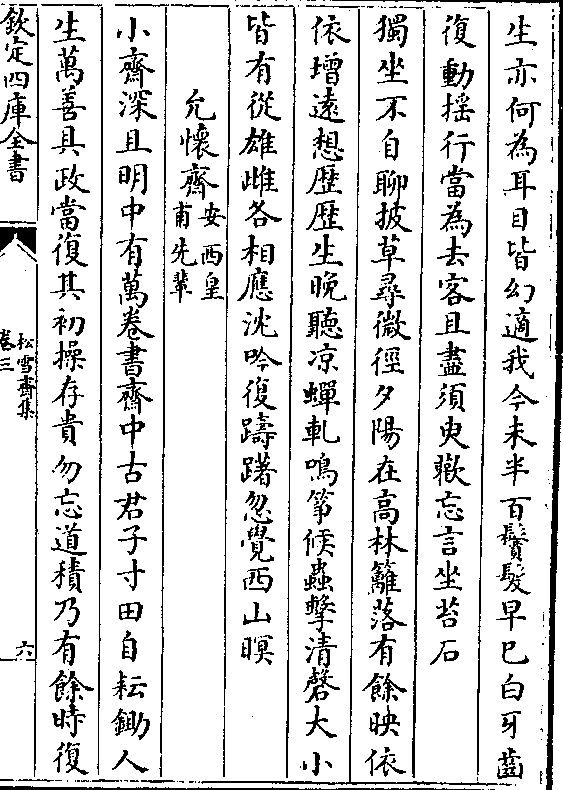 生亦何為耳目皆幻適我今未半百鬢髮早已白牙齒
復動揺行當為去客且盡須臾歡忘言坐苔石
獨坐不自聊披草尋微徑夕陽在髙林籬落有餘映依
依增逺想歴歴生晚聽凉蟬軋鳴筝候蟲擊清磬大小
皆有從雄雌各相應沈吟復躊躇忽覺西山暝
允懐齋安西皇
甫先輩
小齋深且明中有萬卷書齋中古君子寸田自耘鋤人
生萬善具政當復其初操存貴勿忘道積乃有餘時復
欽定四庫全書
松雪齋集
卷三
六